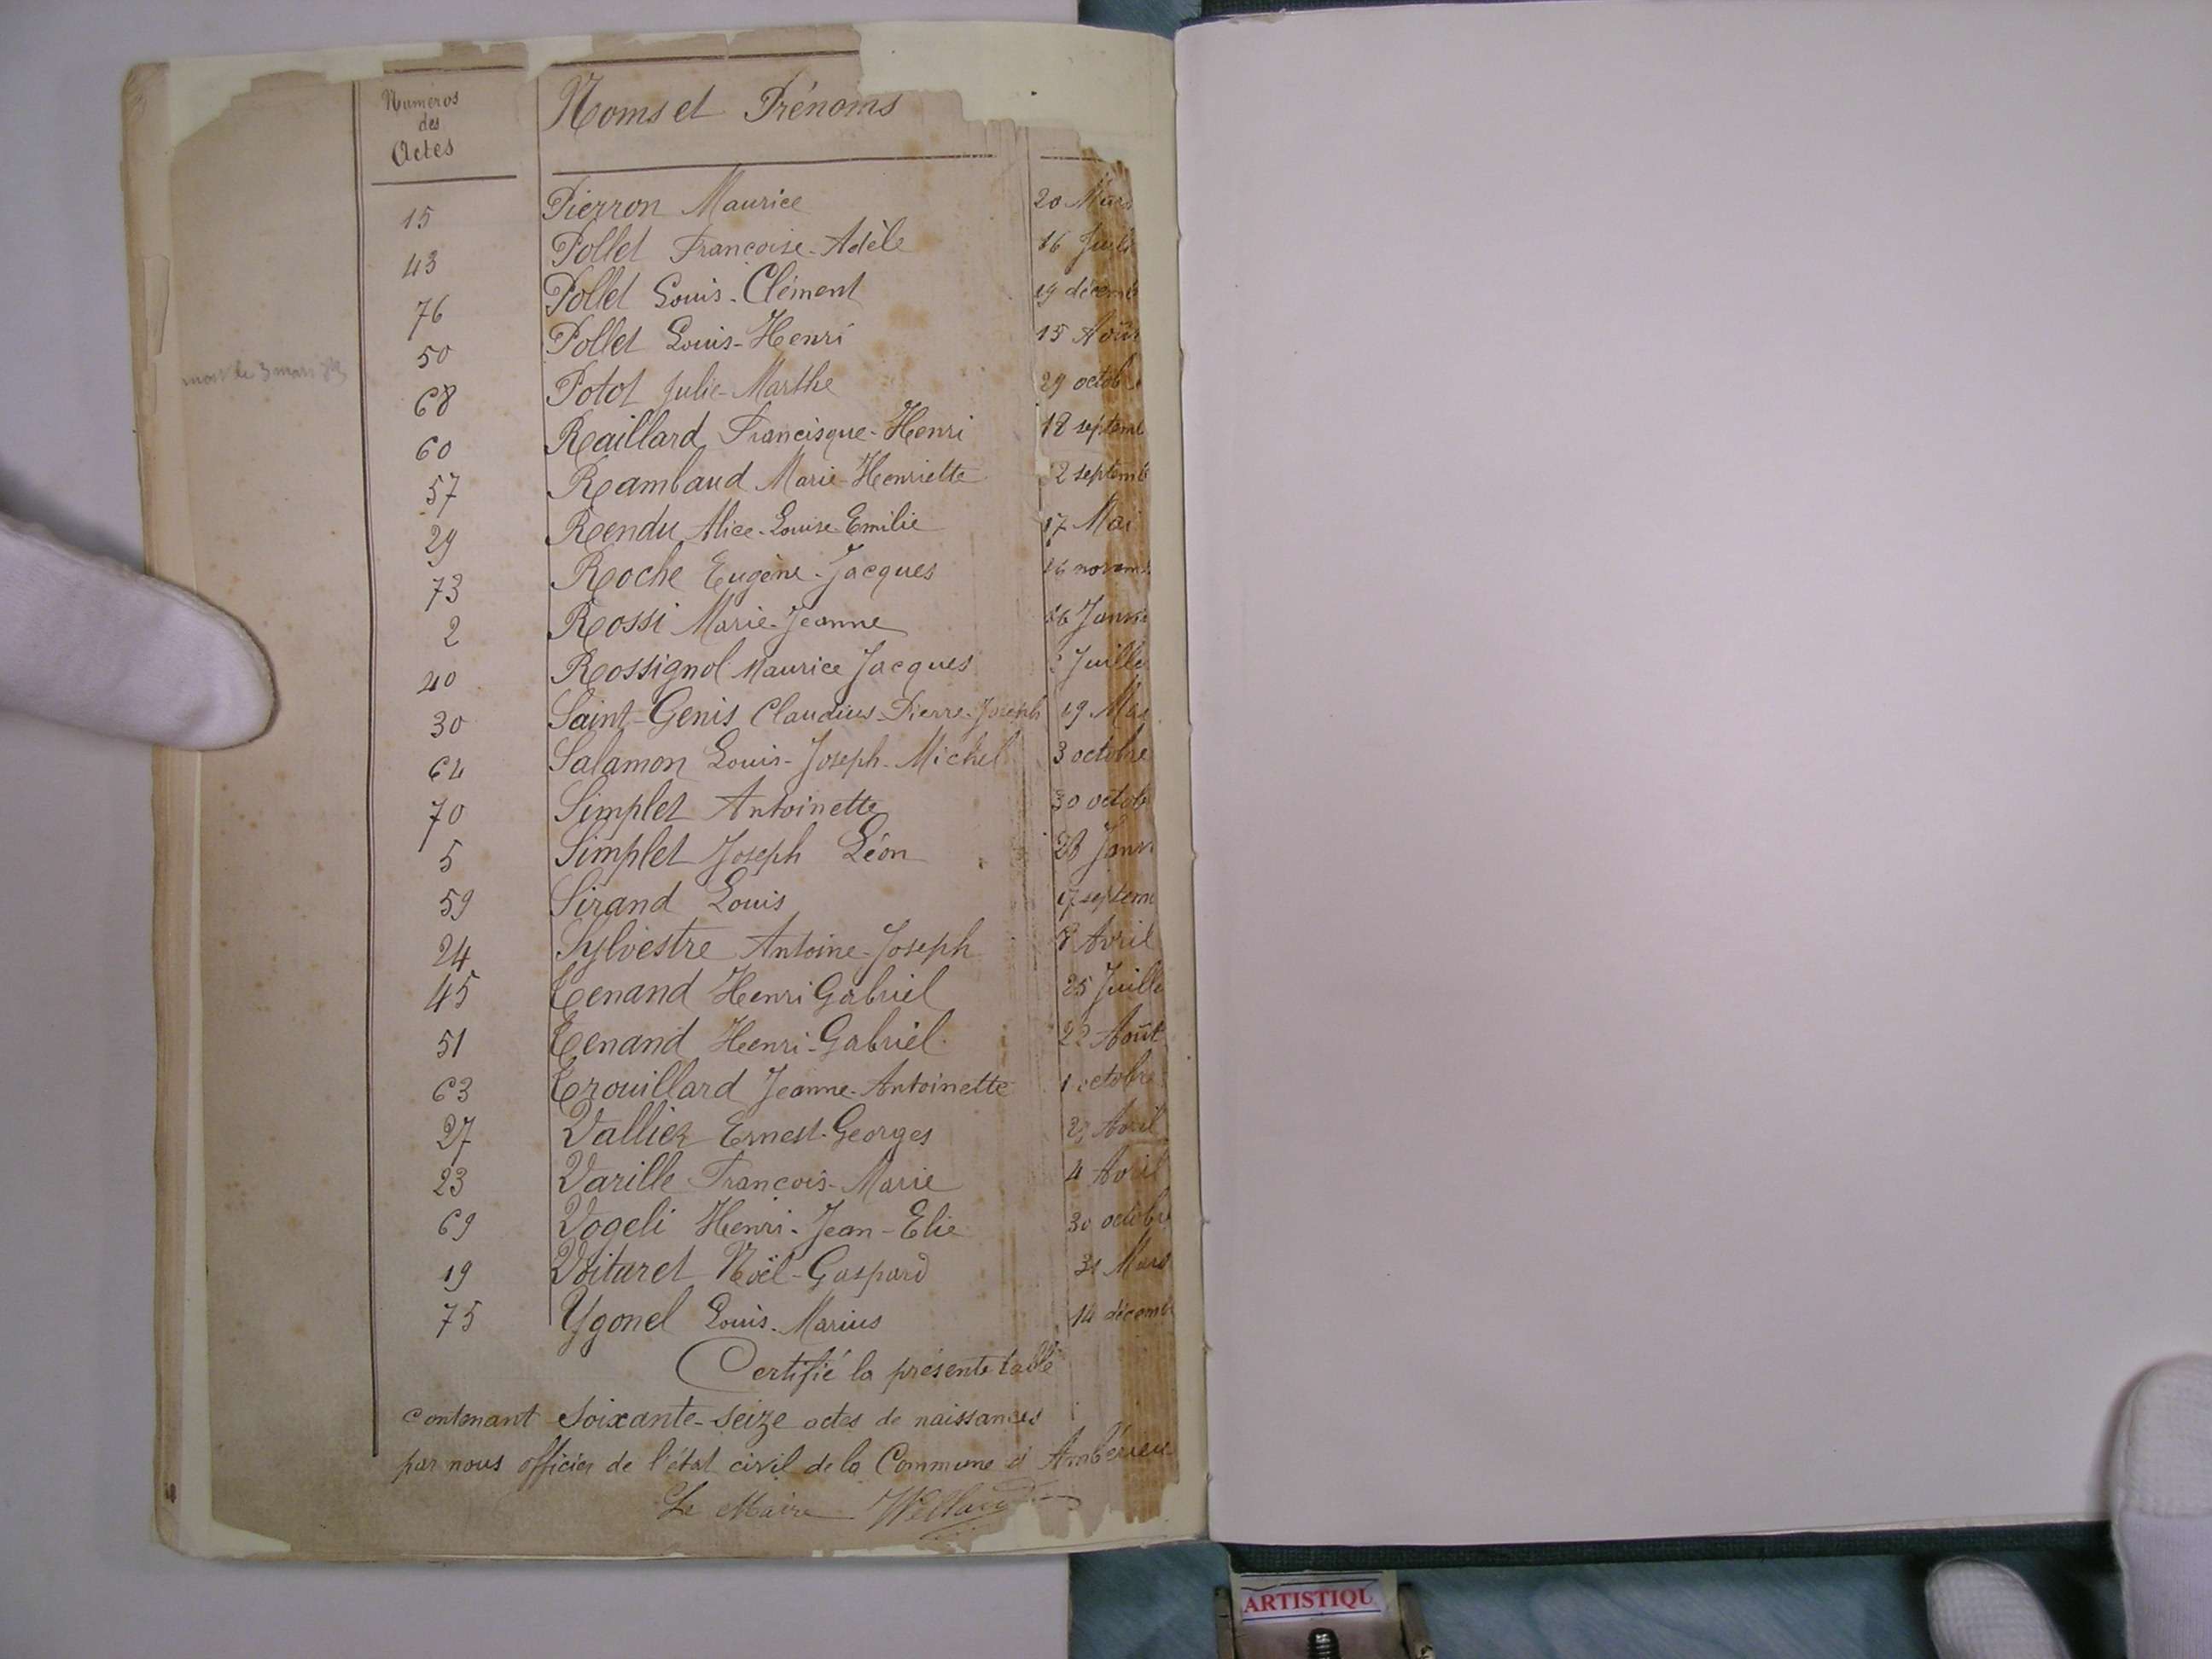 Numéros
des
Actes
Noms et Prénoms
15 Pierron Maurice 20 Mars
43 Pollet Françoise-Adèle 16 Juill
76 Pollet Louis-Clément 19 décemb
50 Pollet Louis-Henri 15 Août
mort le 3 mars
68 Potot Julie-Marthe 29 octobre
60 Raillard Francisque-Henri 18 septemb
57 Rambaud Marie-Henriette 2 septemb
29 Rendu Alice-Louise-Emilie 17 Mai
73 Roche Eugène-Jacques 26 novemb
2 Rossi Marie-Jeanne 16 Janvi
40 Rossignol Maurice Jacques Juille
30 Saint-Genis Claudius-Pierre-Joseph 19 Mai
64 Salamon Louis-Joseph-Michel 3 octobre
70 Simplet Antoinette 30 octob
5 Simplet Joseph Léon 28 Janv
59 Sirand Louis 17 septem
24 Sylvestre Antoine-Joseph 8 Avril
45 Tenand Henri Gabriel 25 Juille
51 Tenand Henri-Gabriel 22 Août
63 Trouillard Jeanne-Antoinette 1 octobre
27 Vallier Ernest-Georges 29 Avril
23 Varille François-Marie 4 Avril
69 Vogeli Henri-Jean-Elie 30 octobre
19 Voituret Noël-Gaspard 31 Mars
75 Ygonel Louis-Marius 14 décemb
Certifié la présente table
contenant soixante-seize actes de naissances
par nous officier de l'état civil de la Commune d'Ambérieu
Le Maire
ARTISTIQU